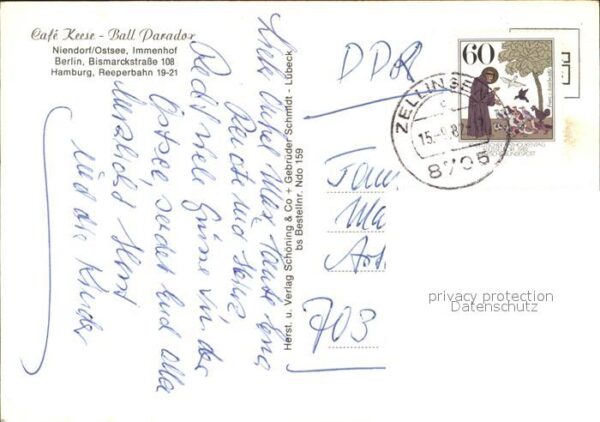 Café Keese - Ball Paradox
Niendorf/Ostsee, Immenhof
Berlin, Bismarckstraße 108
Hamburg, Reeperbahn 19-21
Onkel Max, Tante
und
Recht viele Grüsse von der
Ostsee, sendet Euch alle
herzlichst Horst
und die Kinder
Herst. u. Verlag Schöning & Co + Gebrüder Schmidt - Lübeck
bs Bestellnr. Ndo 159
DDR
Fam.
Ma
703
60
ZELLINGEN
15.-9.82
8705
privacy protection
Datenschutz